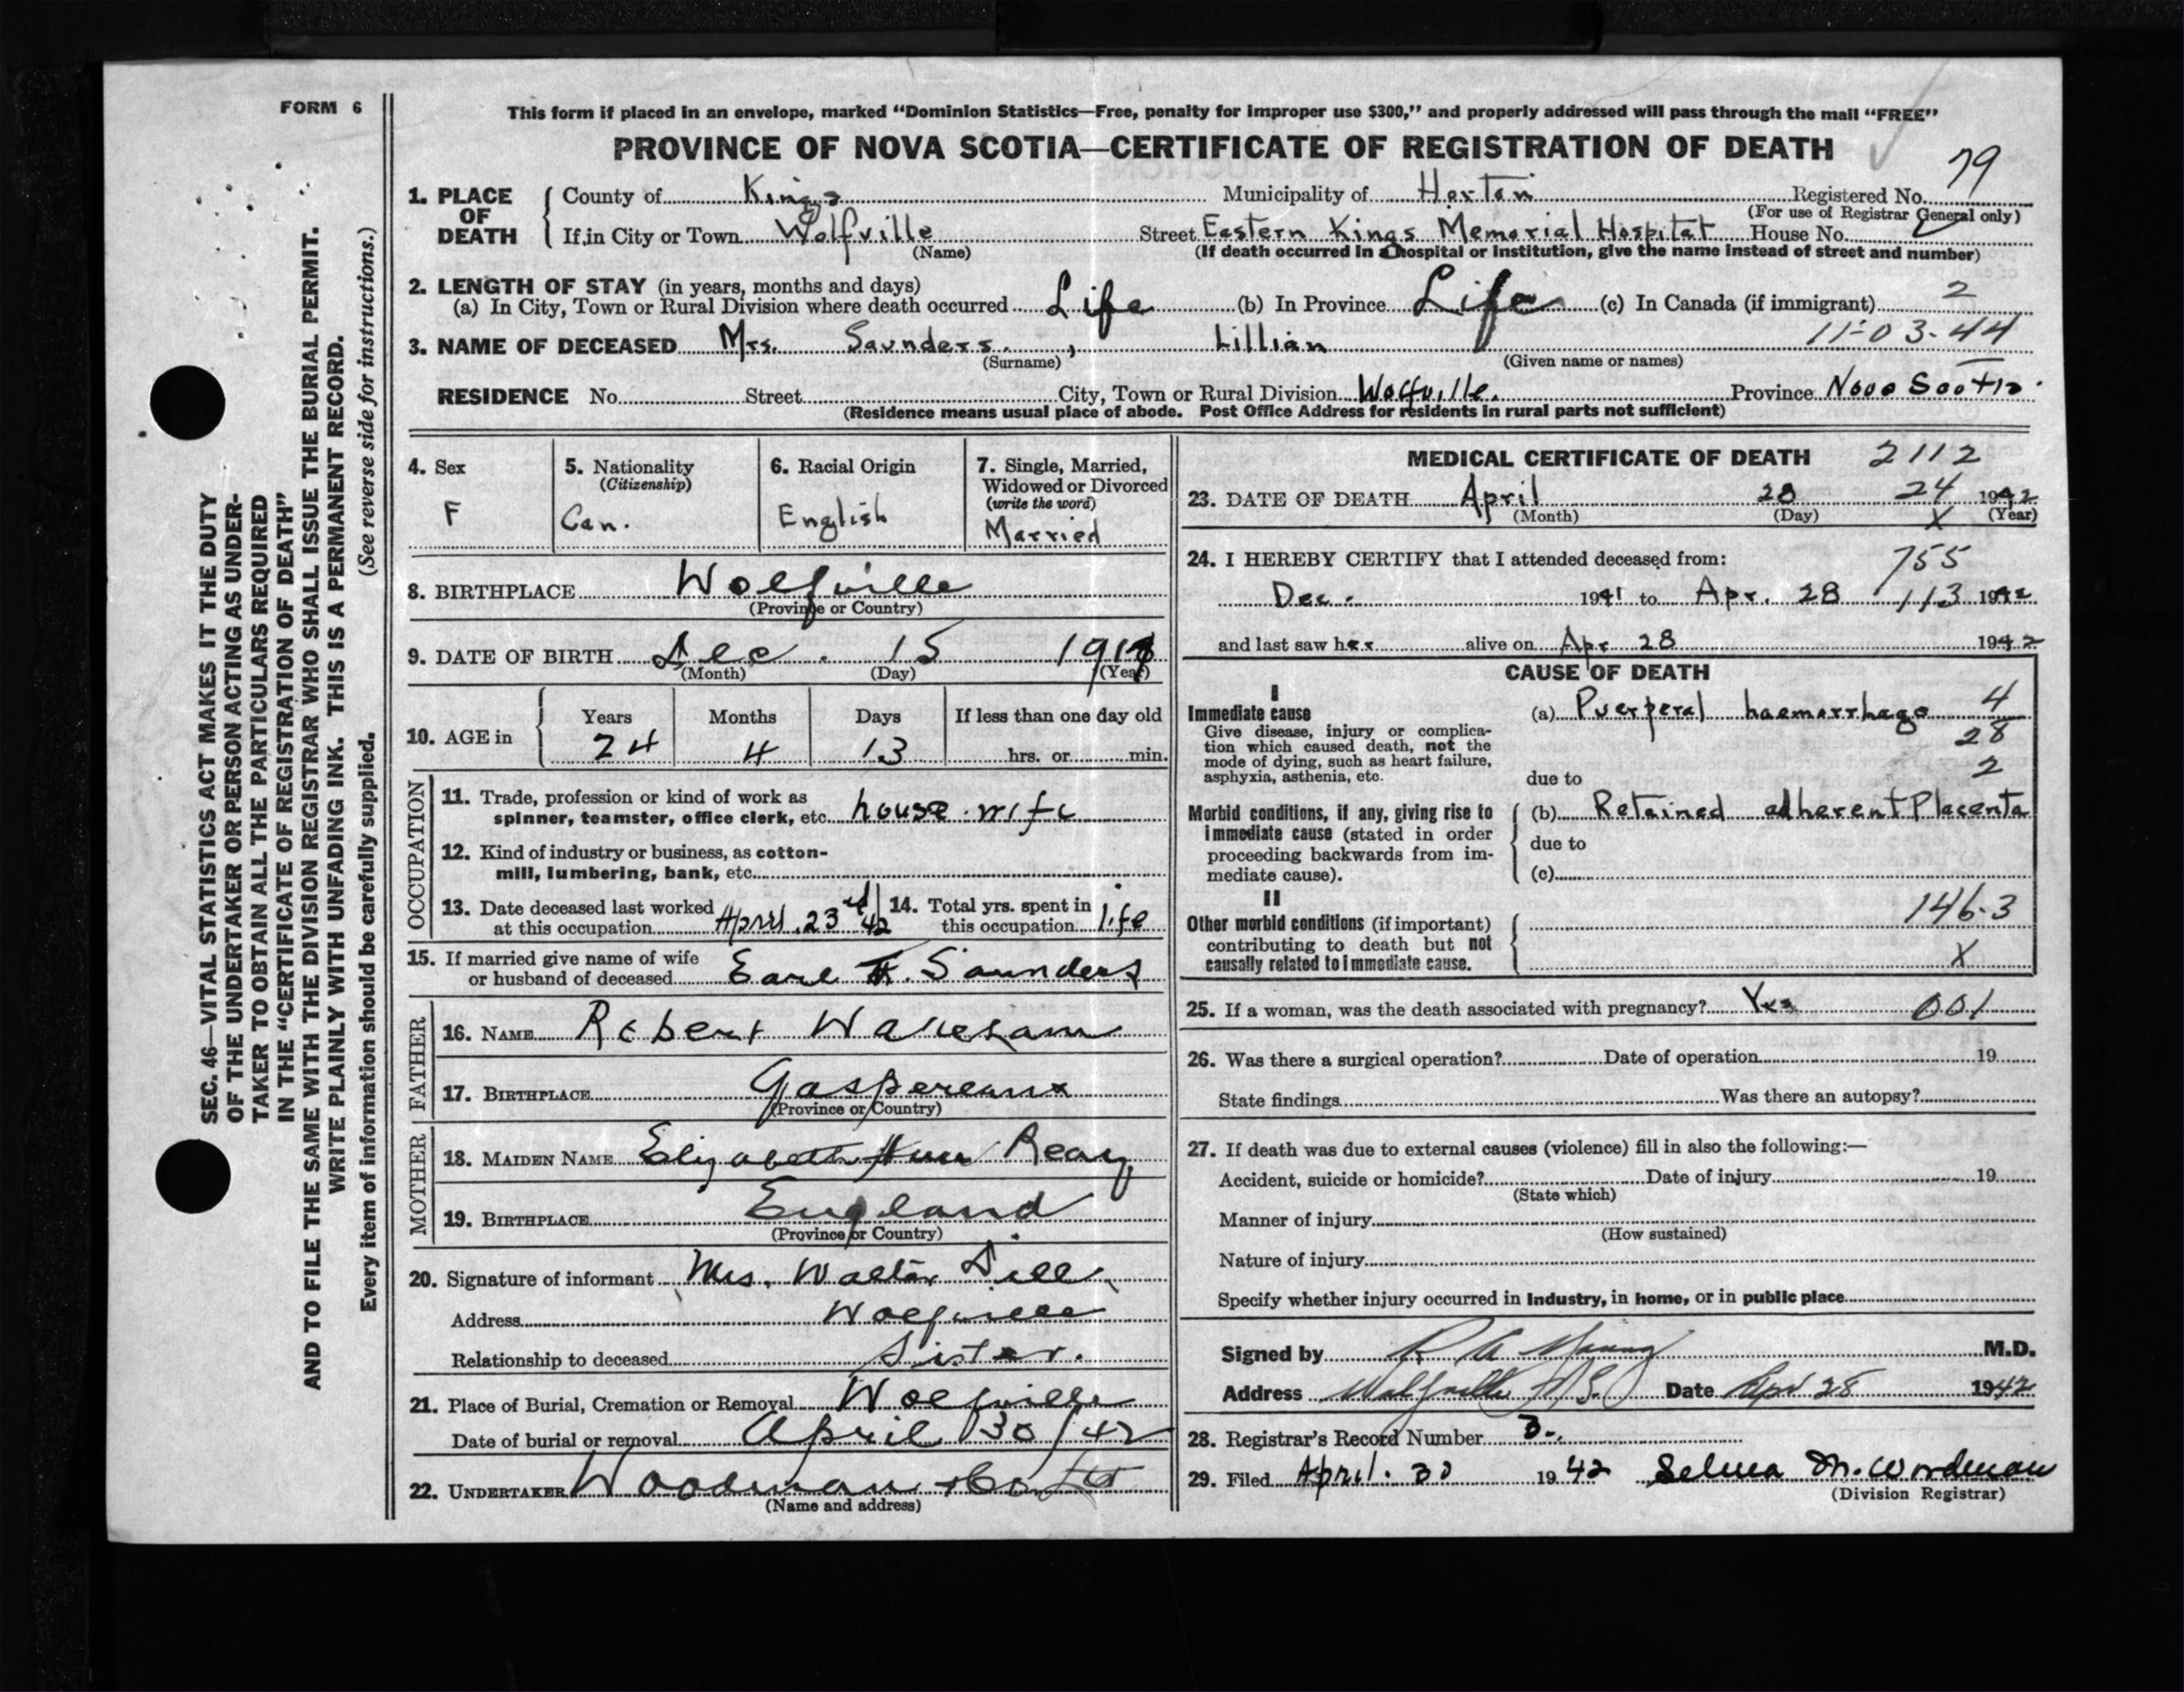 FORM 6
This form if placed in an envelope, marked “Dominion Statistics—Free, penalty for improper use $300,” and properly addressed will pass through the mail “FREE”
PROVINCE OF NOVA SCOTIA—CERTIFICATE OF REGISTRATION OF DEATH
79
1. PLACE OF DEATH County of Kings Municipality of Horton Registered No.
(For use of Registrar General only)
If in City or Town Wolfville Street Eastern Kings Memorial Hospital House No.
(Name) (If death occurred in a hospital or institution, give the name instead of street and number)
2. LENGTH OF STAY (in years, months and days)
(a) In City, Town or Rural Division where death occurred Life (b) In Province Life (c) In Canada (if immigrant) 2
11-03-44
3. NAME OF DECEASED Mrs. Saunders, Lillian
(Surname) (Given name or names)
RESIDENCE No. Street City, Town or Rural Division Wolfville. Province Nova Scotia.
(Residence means usual place of abode. Post Office Address for residents in rural parts not sufficient)
4. Sex F
5. Nationality (Citizenship) Can.
6. Racial Origin English
7. Single, Married, Widowed or Divorced (write the word) Married
8. BIRTHPLACE Wolfville
(Province or Country)
9. DATE OF BIRTH Dec. 15
(Month) (Day) (Year)
10. AGE in Years 24 Months 4 Days 13 If less than one day old hrs. or min.
OCCUPATION
11. Trade, profession or kind of work as
spinner, teamster, office clerk, etc. house-wife
12. Kind of industry or business, as cotton-
mill, lumbering, bank, etc.
13. Date deceased last worked
at this occupation April 23rd 42
14. Total yrs. spent in
this occupation life
15. If married give name of wife
or husband of deceased Earl Saunders
FATHER
16. NAME Robert
17. BIRTHPLACE Gaspereaux
(Province or Country)
MOTHER
18. MAIDEN NAME Elizabeth Ann Reay
19. BIRTHPLACE England
(Province or Country)
20. Signature of informant Mrs. Walter Dill
Address Wolfville
Relationship to deceased Sister.
21. Place of Burial, Cremation or Removal Wolfville
Date of burial or removal April 30/42
22. UNDERTAKER Woodman & Co Ltd
(Name and address)
MEDICAL CERTIFICATE OF DEATH 2112
23. DATE OF DEATH April 28 24 1942
(Month) (Day) X (Year)
24. I HEREBY CERTIFY that I attended deceased from: 755
Dec. 1941 to Apr. 28 113 1942
and last saw her alive on Apr 28 1942
CAUSE OF DEATH
I
Immediate cause
Give disease, injury or complica-
tion which caused death, not the
mode of dying, such as heart failure,
asphyxia, asthenia, etc.
(a) Puerperal haemorrhage 4
28
2
due to
Morbid conditions, if any, giving rise to
immediate cause (stated in order
proceeding backwards from im-
mediate cause).
(b) Retained adherent Placenta
due to
(c)
II
Other morbid conditions (if important)
contributing to death but not
causally related to immediate cause.
146.3
X
25. If a woman, was the death associated with pregnancy? Yes 001
26. Was there a surgical operation? Date of operation 19
State findings Was there an autopsy?
27. If death was due to external causes (violence) fill in also the following:—
Accident, suicide or homicide? Date of injury 19
(State which)
Manner of injury
(How sustained)
Nature of injury
Specify whether injury occurred in Industry, in home, or in public place
Signed by R A M.D.
Address Wolfville N.S. Date Apr 28 1942
28. Registrar's Record Number 3.
29. Filed April. 30 1942 Selma M. Woodman
(Division Registrar)
SEC. 46—VITAL STATISTICS ACT MAKES IT THE DUTY
OF THE UNDERTAKER OR PERSON ACTING AS UNDER-
TAKER TO OBTAIN ALL THE PARTICULARS REQUIRED
IN THE “CERTIFICATE OF REGISTRATION OF DEATH”
AND TO FILE THE SAME WITH THE DIVISION REGISTRAR WHO SHALL ISSUE THE BURIAL PERMIT.
WRITE PLAINLY WITH UNFADING INK. THIS IS A PERMANENT RECORD.
Every item of information should be carefully supplied. (See reverse side for instructions.)